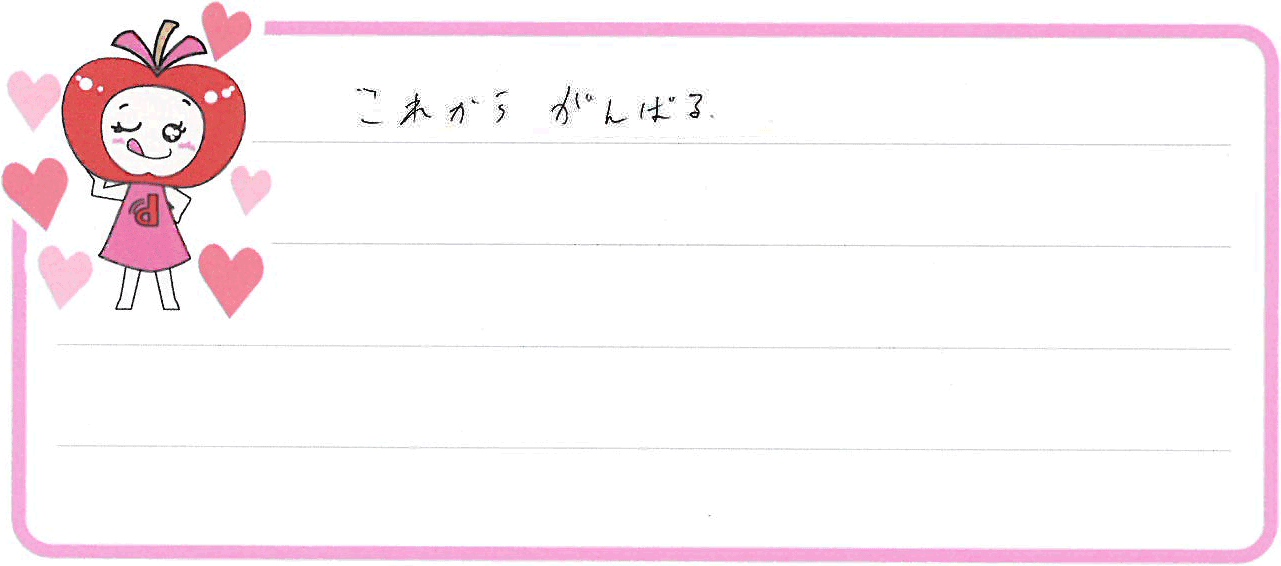 これから がんばる.
d